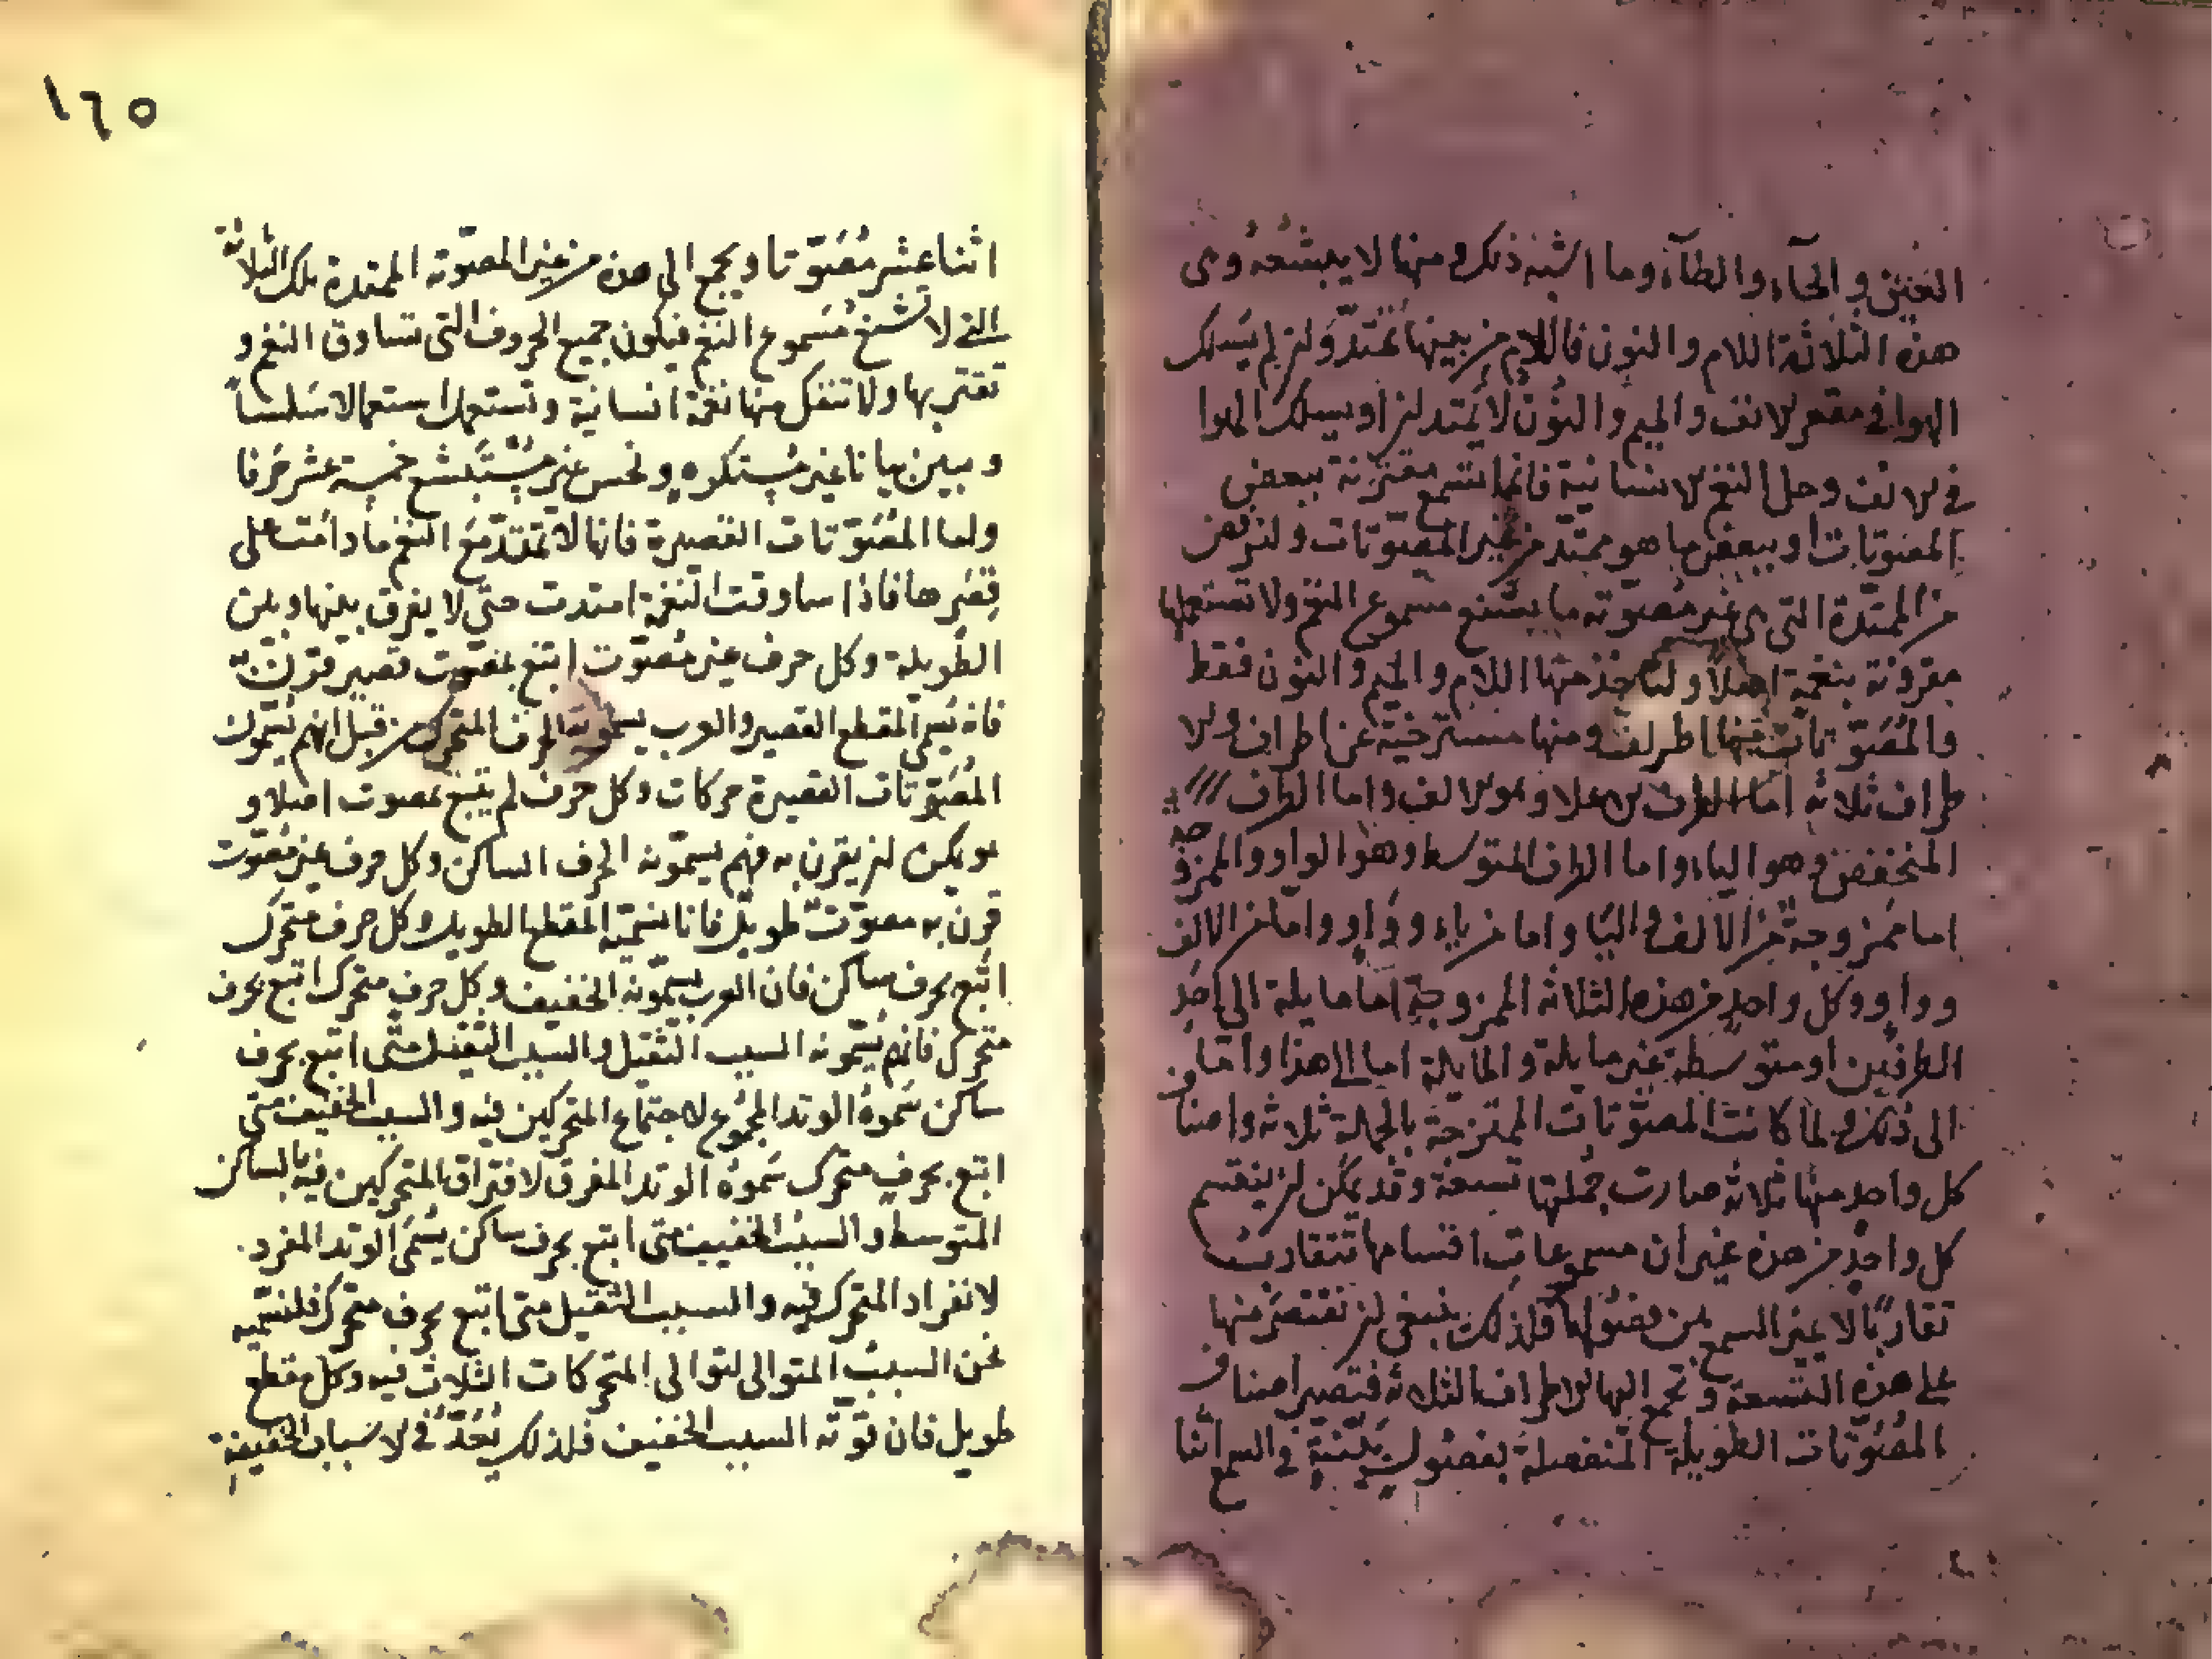 العين والحاء والطآء وما اشبه ذلك ومنها لا يبشعه وهى
هذه الثلاثة اللام والنون فاللام من بينها تمتد ولم يسلك
الهوا فى مقعر الانف والميم والنون لا يمتد ان او يسلك الهوا
فى الانف وجل النغم الانسانية فانما تسمع مقترنة ببعض
المصوتات او ببعض ما هو ممتد من غير المصوتات ولنرفض
من الممتدة التى هى غير مصوته ما يبشع مسموع النغم ولا نستعملها
مقرونة بنغمة اصلا ولناخذ منها اللام والميم والنون فقط
والمصوتات منها اطراف ومنها مسترخية عن اطراف والا
طراف ثلاثه اما الطرف الاعلا وهو الالف واما الطرف
المنخفض وهو الياء واما الطرف المتوسط وهو الواو والممزو
جه
اما ممزوجة من الالف والياء واما من ياء وواو واما من الالف
وواو وكل واحد من هذه الثلاثه الممزوجة اما مايلة الى احد
الطرفين او متوسطة غير مايلة والمايلة اما الى هذا واما
الى ذلك ولما كانت المصوتات الممتزجة بالجملة ثلاثه واصناف
كل واحد منها ثلاثه صارت جملتها تسعة وقد يمكن ان ينقسم
كل واحد من هذه غير ان مسموعات اقسامها تتقارب
تقاربا لا يميز السمع بين فصولها فلذلك ينبغى ان نقتصر منها
على هذه التسعة وتجمع اليها الاطراف الثلاثه فتصير اصناف
المصوتات الطويلة المنفصلة بفصول بينة فى السمع اثنا
١٦٥
اثنا عشر مصوتا ويجمع الى هذه من غير المصوته الممتدة تلك الثلاثة
التى لا تبشع مسموع النغم فيكون جميع الحروف التى تساوق النغم و
تقترن بها ولا تنفك منها نغمة انسانية وتستعمل استعمالا سلسا
وببين بيانا غير مستكره ونحس غير مستبشع خمسة عشر حرفا
واما المصوتات القصيرة فانها لا تمتد مع النغم ما دامت على
قصرها فاذا ساوقت النغمة امتدت حتى لا يفرق بينها وبين
الطويلة وكل حرف غير مصوت اتبع بمصوت قصير قرن به
فانه يسمى المقطع القصير والعرب يسمونه الحرف المتحرك من قبل انهم يسمون
المصوتات القصيرة حركات وكل حرف لم يتبع بمصوت اصلا و
هو يمكن ان يقرن به فهم يسمونه الحرف الساكن وكل حرف غير مصوت
قرن به مصوت طويل فانا نسميه المقطع الطويل وكل حرف متحرك
اتبع بحرف ساكن فان العرب يسمونه الخفيف وكل حرف متحرك اتبع بحرف
متحرك فانهم يسمونه السبب الثقيل والسبب الثقيل متى اتبع بحرف
ساكن سموه الوتد المجموع لاجتماع المتحركين فيه والسبب الخفيف متى
اتبع بحرف متحرك سموه الوتد المفرق لافتراق المتحركين فيه بالساكن
المتوسط والسبب الخفيف متى اتبع بحرف ساكن يسمى الوتد المفرد
لانفراد المتحرك فيه والسبب الثقيل متى اتبع بحرف متحرك فلنسميه
نحن السبب المتوالى لتوالى المتحركات الثلاث فيه وكل مقطع
طويل فان قوته السبب الخفيف فلذلك نعد فى الاسباب الخفيفة